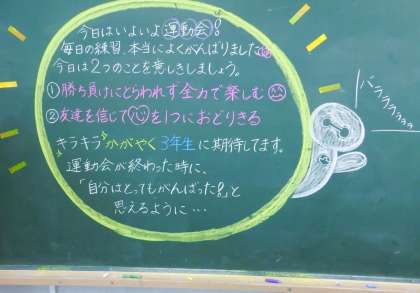 今日はいよいよ運動会!
毎日の練習、本当によくがんばりました
今日は2つのことを意しきしましょう。
①勝ち負けにとらわれず全力で楽しむ
②友達を信じて心を1つにおどりきる
キラキラかがやく3年生に期待してます。
運動会が終わった時に、
「自分はとってもがんばった!」と
思えるように…
パラララララ